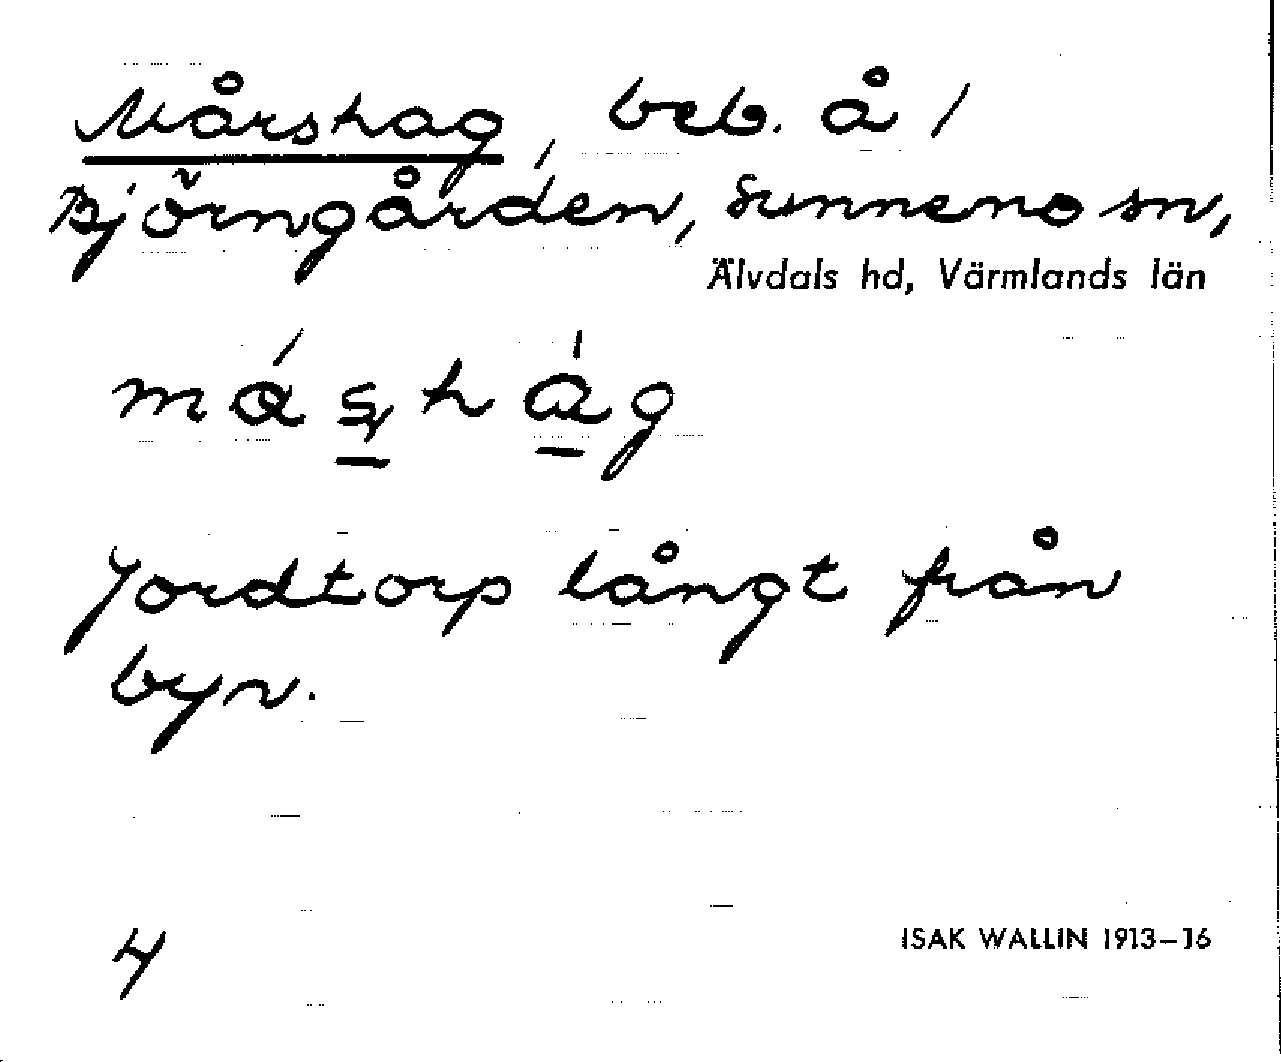 Mårshag, beb. å /
Björngården, Sunnemo sn,
Älvdals hd, Värmlands län
Jordtorp långt från
byn.
4
ISAK WALLIN 1913–16